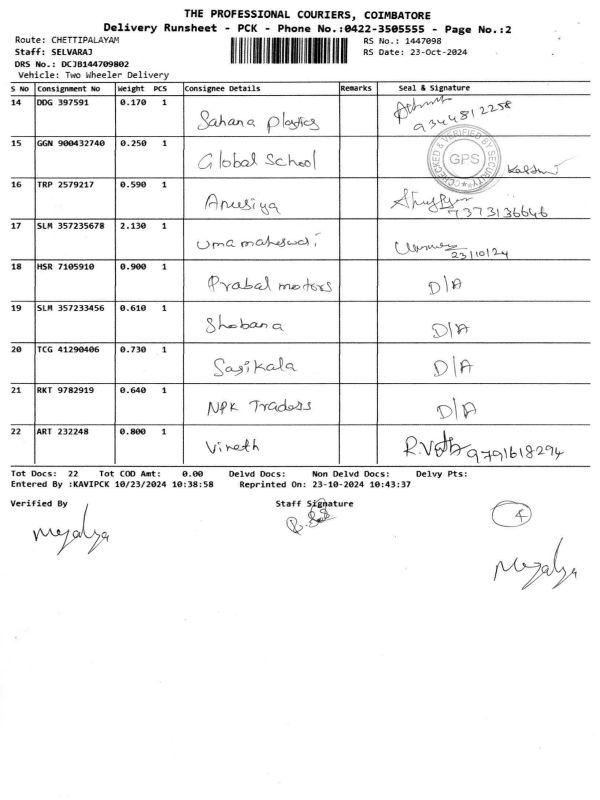 THE PROFESSIONAL COURIERS, COIMBATORE
Delivery Runsheet - PCK - Phone No.:0422-3505555 - Page No.:2
Route: CHETTIPALAYAM RS No.: 1447098
Staff: SELVARAJ RS Date: 23-Oct-2024
DRS No.: DCJB144709802
Vehicle: Two Wheeler Delivery
S No Consignment No Weight PCS Consignee Details Remarks Seal & Signature
14 DDG 397591 0.170 1 Sahana Plastics 9344812258
15 GGN 900432740 0.250 1 Global School CHECKED & VERIFIED BY SECURITY GPS
16 TRP 2579217 0.590 1 Anusiya 7373136646
17 SLM 357235678 2.130 1 Uma maheswari 23/10/24
18 HSR 7105910 0.900 1 Prabal motors D/A
19 SLM 357233456 0.610 1 Shobana D/A
20 TCG 41290406 0.730 1 Sasikala D/A
21 RKT 9782919 0.640 1 NPK Traders D/A
22 ART 232248 0.800 1 Vineth 9791618294
Tot Docs: 22 Tot COD Amt: 0.00 Delvd Docs: Non Delvd Docs: Delvy Pts:
Entered By :KAVIPCK 10/23/2024 10:38:58 Reprinted On: 23-10-2024 10:43:37
Verified By Staff Signature
4